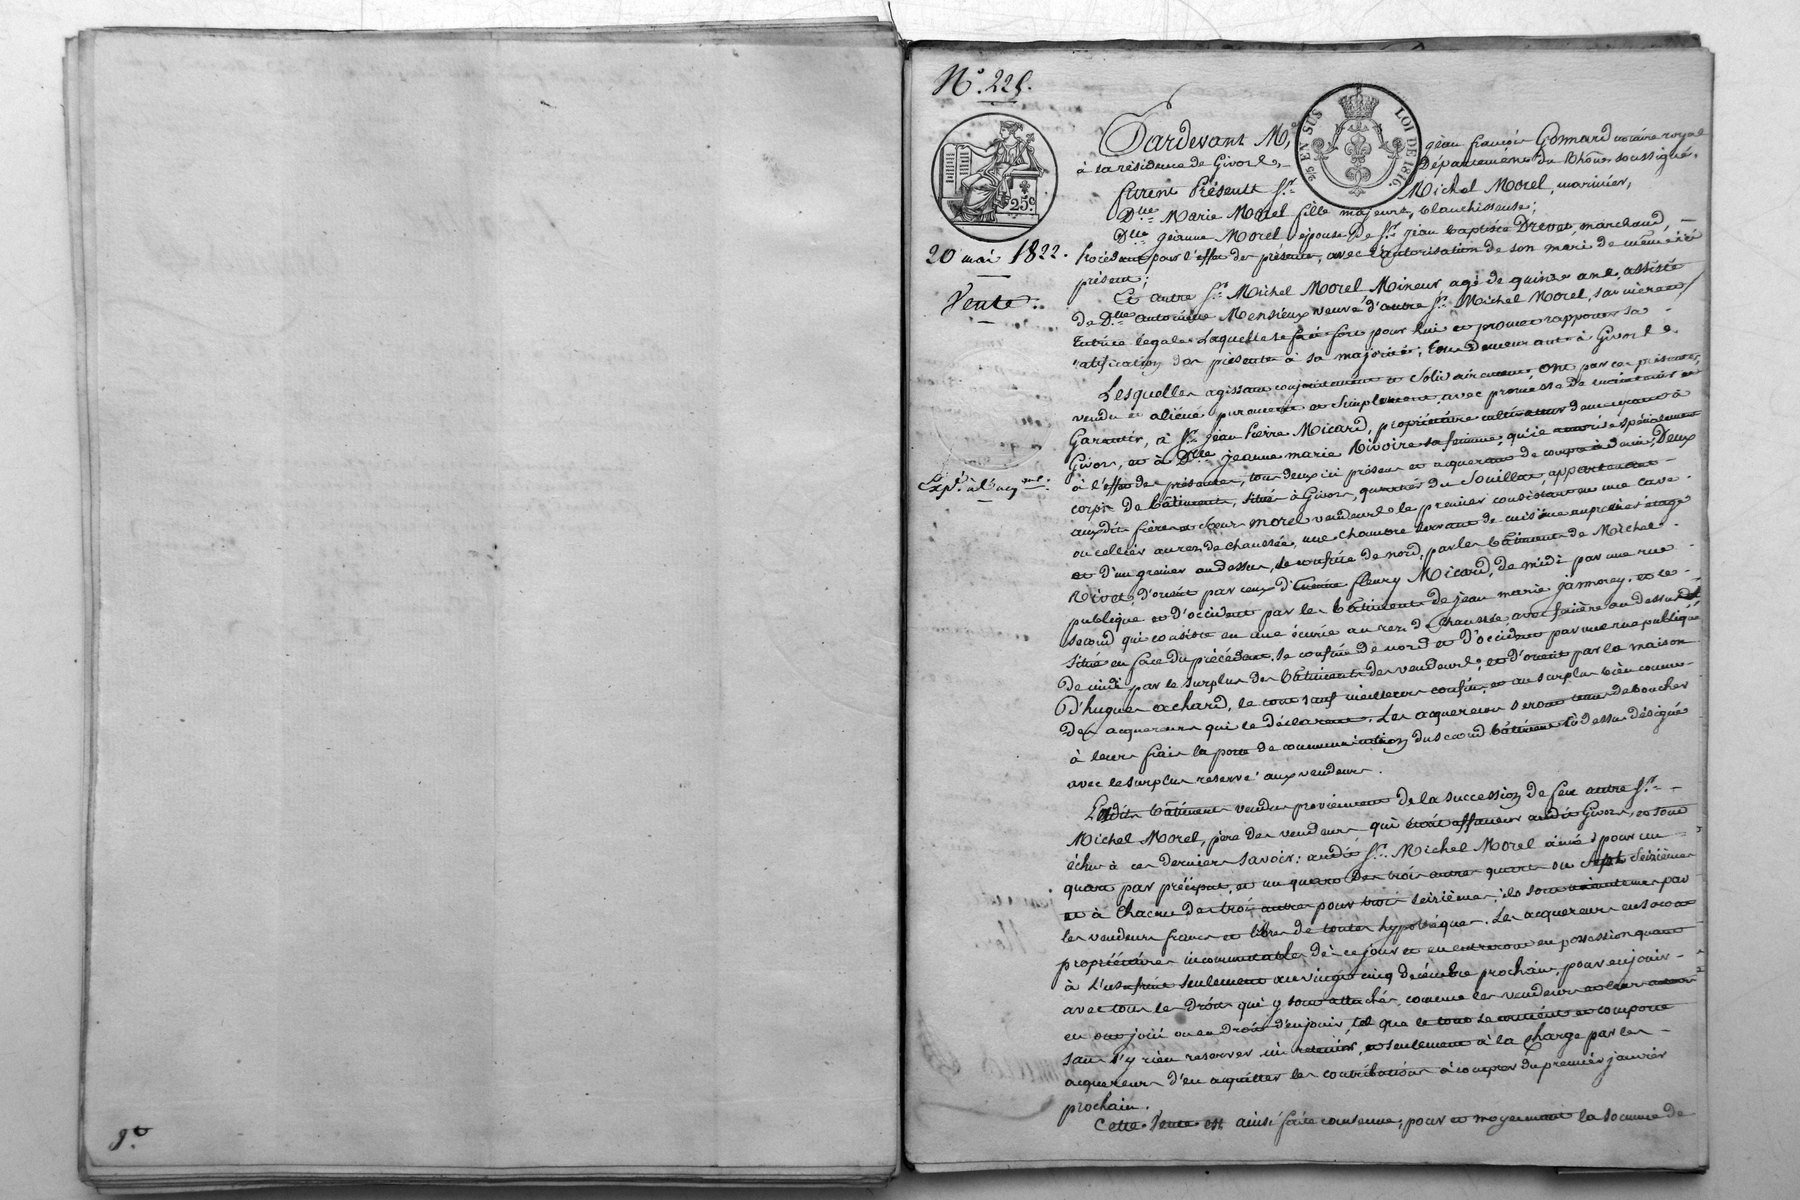 N.° 225.
25 EN SUS
LOI DE 1816.
25c.
Pardevant M.e jean françois Gonnard notaire royal
à la résidence de Givors, Département du Rhône soussigné.
furent Présents S.r Michel Morel, marinier,
D.lle Marie Morel fille majeure, blanchisseuse;
D.lle jeanne Morel épouse de S.r jean baptiste Drevet, marchand,
20 mai 1822.
procédant pour l'effet des présentes, avec l'autorisation de son mari de même ici
présent;
Vente.
Et autre S.r Michel Morel Mineur, agé de quinze ans, assisté
de D.lle antoinette veuve d'autre S.r Michel Morel, sa mère et
tutrice légale laquelle se fait fort pour lui et promet rapporter sa
ratification des présentes à sa majorité; tous Demeurant à Givors.
Lesquelles agissant conjointement et Solidairement Ont par ces présentes,
vendu et aliéné purement et simplement, avec promesse de maintenir et
Garantir, à S.r jean Pierre Micard, propriétaire cultivateur demeurant à
Givors, et à D.lle jeanne marie Rivoire sa femme, qu'il autorise spécialement
à l'effet des présentes, tous deux ici présens et acquérant de compte à demi, Deux
Exp.on à l'acq.
corps de bâtiments, situés à Givors, quartier du Souillat, appartenant
auxdits frères et sœurs morel vendeurs le premier consistant en une cave
ou cellier au rez de chaussée, une chambre servant de cuisine au premier étage
et d'un grenier au dessus, se confine de nord, par les bâtiments de Michel
Rivet, d'orient par ceux d'Etienne fleury Micard, de midi par une rue
publique et d'occident par les bâtiments de jean marie jamorey. et le
second qui consiste en une écurie au rez de chaussée, avec fenière au dessus est
situé en face du précédent. se confine de nord et d'occident par une rue publique
de midi par le surplus des bâtiments des vendeurs; et d'orient par la maison
d'hugues achard, le tout sauf meilleurs confins, et au surplus bien connu
des acquereurs qui le déclarent. Les acquereurs seront tenus de boucher
à leurs frais la porte de communication du second bâtiment ci dessus désigné
avec le surplus réservé aux vendeurs.
Lesdits bâtiments vendus proviennent de la succession de feu autre S.r
Michel Morel, père des vendeurs qui était affaneur audit Givors, et sont
échus à ces derniers savoir: audit S.r Michel Morel ainé pour un
quart par préciput, et un quart des trois autres quarts ou sept seizièmes
et à chacun des trois autres pour trois seizièmes; ils sont maintenus par
les vendeurs francs et libres de toutes hypothèques. Les acquereurs en seront
propriétaires incommutables dès ce jour et en entreront en possession quant
à l'usufruit seulement au vingt cinq décembre prochain, pour en jouir
avec tous les droits qui y sont attachés, comme les vendeurs et leurs auteurs
en ont joüi ou eu droit d'en jouir, tel que le tout se contient et comporte
sans s'y rien reserver ni retenir, et seulement à la charge par les
acquereurs d'en acquitter les contributions à compter du premier janvier
prochain.
Cette Vente est ainsi faite convenue, pour et moyennant la somme de